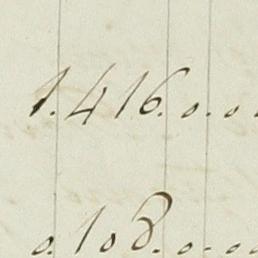 1.416.0.0.
0.108.0.00